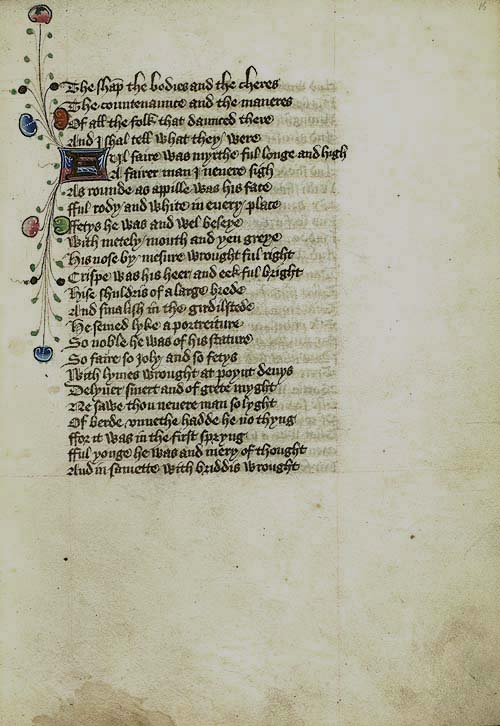 The shap the bodies and the cheres
The countenaunce and the maneres
Of all the folk that daunced there
And I shal tell what they were
Ful faire was myrthe ful longe and high
A fairer man I neuere sigh
As rounde as appille was his face
Fful rody and white in euery place
Ffetys he was and wel beseye
With metely mouth and yen greye
His nose by mesure wrought ful right
Crispe was his heer and eek ful bright
Hise shuldris of a large brede
And smalish in the girdilstede
He semed lyke a portreiture
So noble he was of his stature
So faire so ioly and so fetys
With lymes wrought at poynt deuys
Delyuer smert and of grete myght
Ne sawe thou neuere man so lyght
Of berde vnnethe hadde he no thyng
Ffor it was in the first spryng
Fful yonge he was and mery of thought
And in samette with briddis wrought